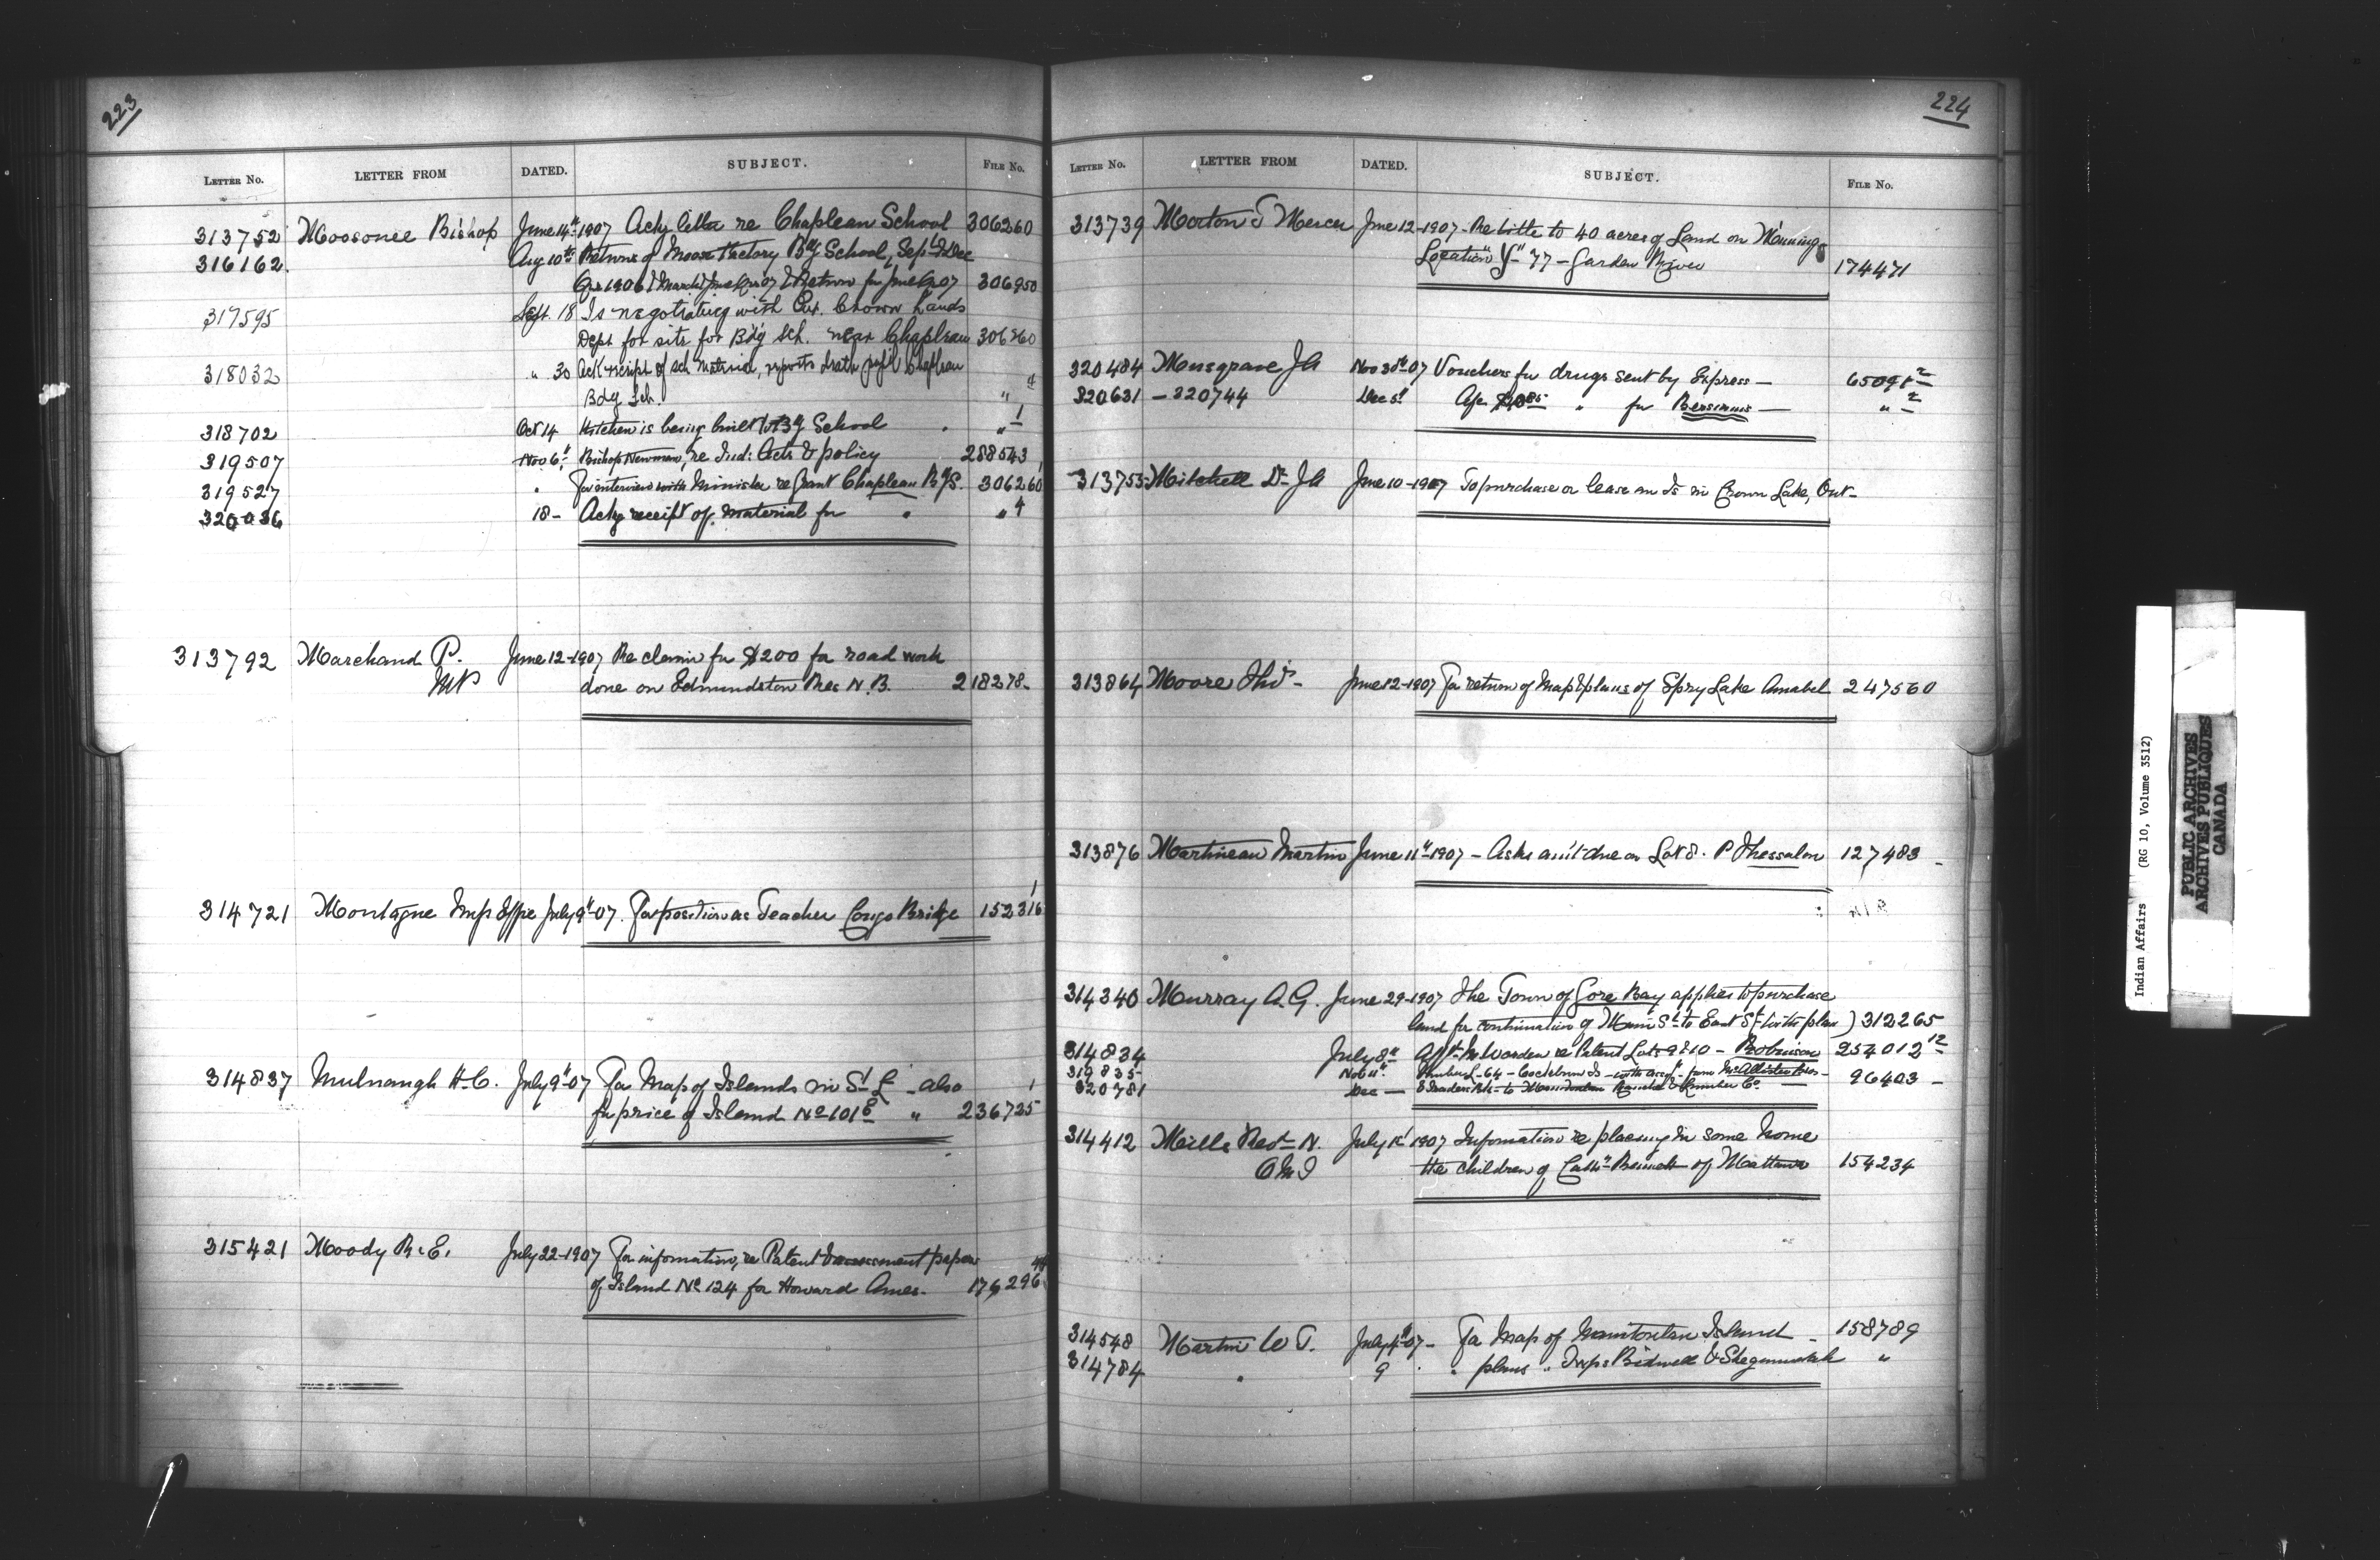 223
LETTER NO. LETTER FROM DATED. SUBJECT. FILE NO.
313752 Moosonee Bishop June 14th 1907 Ackg letter re Chapleau School 306260
316162. Aug 10th Returns of Moose Factory Bdg School, Sept & Dec
Qrs 1906 & March & June Qrs 07 & Return for June Qr 07 306950
317595 Sept. 18 Is negotiating with Ont. Crown Lands
Dept for site for Bdg Sch. near Chapleau 306260
318032 " 30 Ack receipt of sch material, reports death pupil Chapleau
Bdg Sch. "
318702 Oct 14 Kitchen is being built to Bdg School " 1
319507 Nov 6th Bishop Newman, re Ind: Acts & policy 288543
319527 " For interview with Minister re grant Chapleau BdgS. 306260
320036 18- Ackg receipt of material for " " 4
313792 Marchand P. June 12-1907 Re claim for $200 for road work
MP done on Edmundston Res N.B. 218278-
314721 Montagne Effie July 9th-07. For position as Teacher Congo Bridge 152316 1
314837 Mulnaugh H.C. July 9th-07 For Map of Islands in St L - also 1
for price of Island No 101 E " 236725
315421 Moody R.E. July 22-1907 For information, re Patent & assessment papers
of Island No 124 for Howard Ames. 176296
224
LETTER NO. LETTER FROM DATED. SUBJECT. FILE NO.
313739 Morton & Mercer June 12-1907- Re title to 40 acres of Land on Mining
Location "Y" 77 - Garden River 174471
320484 Musgrave JA Nov 30th 07 Vouchers for drugs sent by Express -
320631 - 320744 Dec 5th " for Bersimis -
313755- Mitchell Dr JA June 10-1907 To purchase or lease an Is in Crown Lake, Ont-
313864 Moore Thos- June 12-1907 For return of Map & plans of Spry Lake Amabel 247560
313876 Martineau Martin June 11th-1907 - Asks am't due on Lot 8. P Thessalon 127483 -
314340 Murray A.G. June 29-1907 The Town of Gore Bay applies to purchase
land for continuation of Main St to East St (with plan) 312265
314834 July 8th re Patent Lots 9 & 10 - Robinson 254012 12
319835- Nov 11th. Timber L-64 - Cockburn Is - McAllister
320781 Dec - Lumber Co. - 96403 -
314412 Mills Revd N. July 1st 1907 Information re placing in some home
OMI the children of Cathn Bennett of Mattawa 154234
314548 Martin W T. July 4th-07- For Map of Manitoulin Island - 158789
314784 " 9 " plans " Twps Bidwell & Sheguiandah "
Indian Affairs (RG 10, Volume 3512)
PUBLIC ARCHIVES
ARCHIVES PUBLIQUES
CANADA